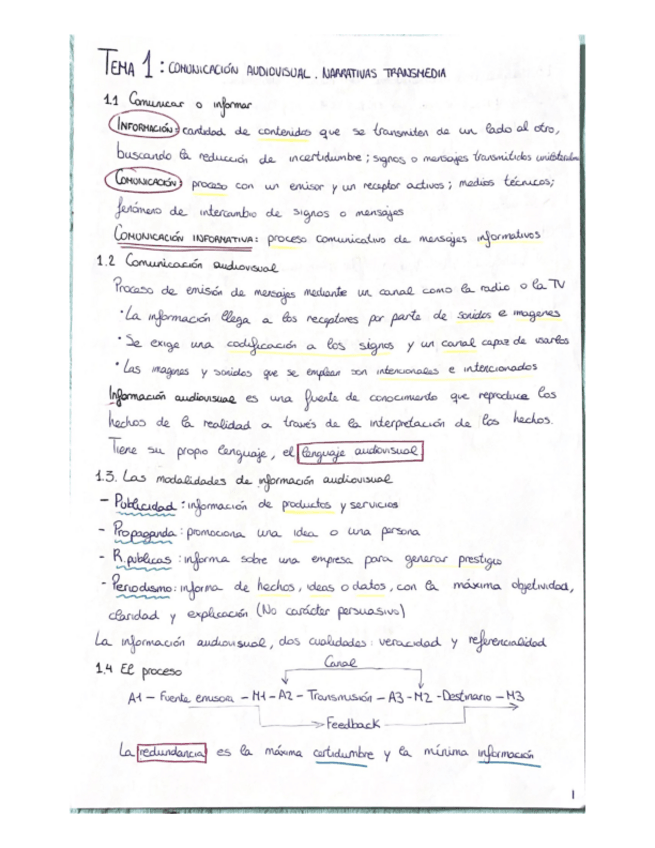 TEMA 1: COMUNICACIÓN AUDIOVISUAL. NARRATIVAS TRANSMEDIA
1.1 Comunicar o informar
INFORMACIÓN: cantidad de contenidos que se transmiten de un lado al otro,
buscando la reducción de incertidumbre; signos o mensajes transmitidos
COMUNICACIÓN: proceso con un emisor y un receptor activos; medios técnicos;
fenómeno de intercambio de signos o mensajes
COMUNICACIÓN INFORMATIVA: proceso comunicativo de mensajes informativos
1.2 Comunicación audiovisual
Proceso de emisión de mensajes mediante un canal como la radio o la TV
· La información llega a los receptores por parte de sonidos e imagenes
· Se exige una codificación a los signos y un canal capaz de usarlos
· Las imagenes y sonidos que se emplean son intencionales e intencionados
Información audiovisual es una fuente de conocimiento que reproduce los
hechos de la realidad a través de la interpretación de los hechos.
Tiene su propio lenguaje, el lenguaje audiovisual
1.3. Las modalidades de información audiovisual
- Publicidad: información de productos y servicios
- Propaganda: promociona una idea o una persona
- R. públicas: informa sobre una empresa para generar prestigio
- Periodismo: informa de hechos, ideas o datos, con la máxima objetividad,
claridad y explicación (No carácter persuasivo)
La información audiovisual, dos cualidades: veracidad y referencialidad
1.4 El proceso
Canal
A1 - Fuente emisora - M1 - A2 - Transmisión - A3 - M2 - Destinario - M3
Feedback
La redundancia es la máxima certidumbre y la mínima información
1